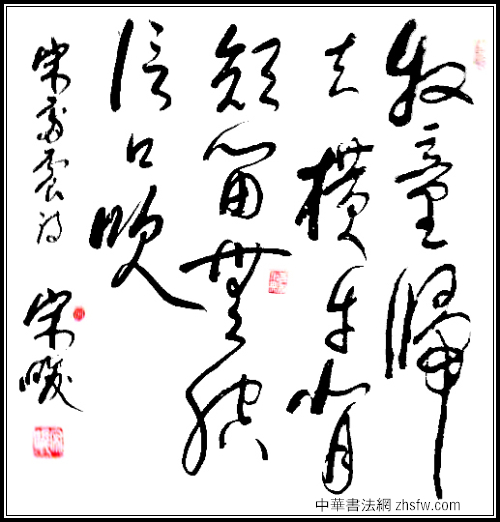 牧童歸
去橫牛背
短笛無腔
信口吹
宋雷震詩
宋
中華書法網 zhsfw.com